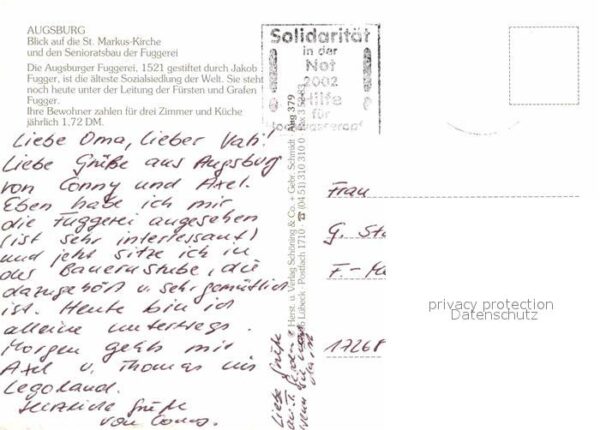 AUGSBURG
Blick auf die St. Markus-Kirche
und den Senioratsbau der Fuggerei
Die Augsburger Fuggerei, 1521 gestiftet durch Jakob
Fugger, ist die älteste Sozialsiedlung der Welt. Sie steht
noch heute unter der Leitung der Fürsten und Grafen
Fugger.
Ihre Bewohner zahlen für drei Zimmer und Küche
jährlich 1,72 DM.
Liebe Oma, lieber Vati!
Liebe Grüße aus Augsburg
von Conny und Axel.
Eben habe ich mir
die Fuggerei angesehen
(ist sehr interessant)
und jetzt sitze ich in
der Bauernstube, die
dazugehört u. sehr gemütlich
ist. Heute bin ich
alleine unterwegs.
Morgen gehts mit
Axel u. Thomas ins
Legoland.
Herzliche Grüße
von Conny.
Liebe Grüße
Solidarität
in der
Not
2002
Hilfe
für
Hochwasseropf
Aug 379
Herst. u. Verlag Schöning & Co. + Gebr. Schmidt
Lübeck · Postfach 1710 · ☎ (04 51) 310 310
Frau
G. St
F.-
17268
privacy protection
Datenschutz